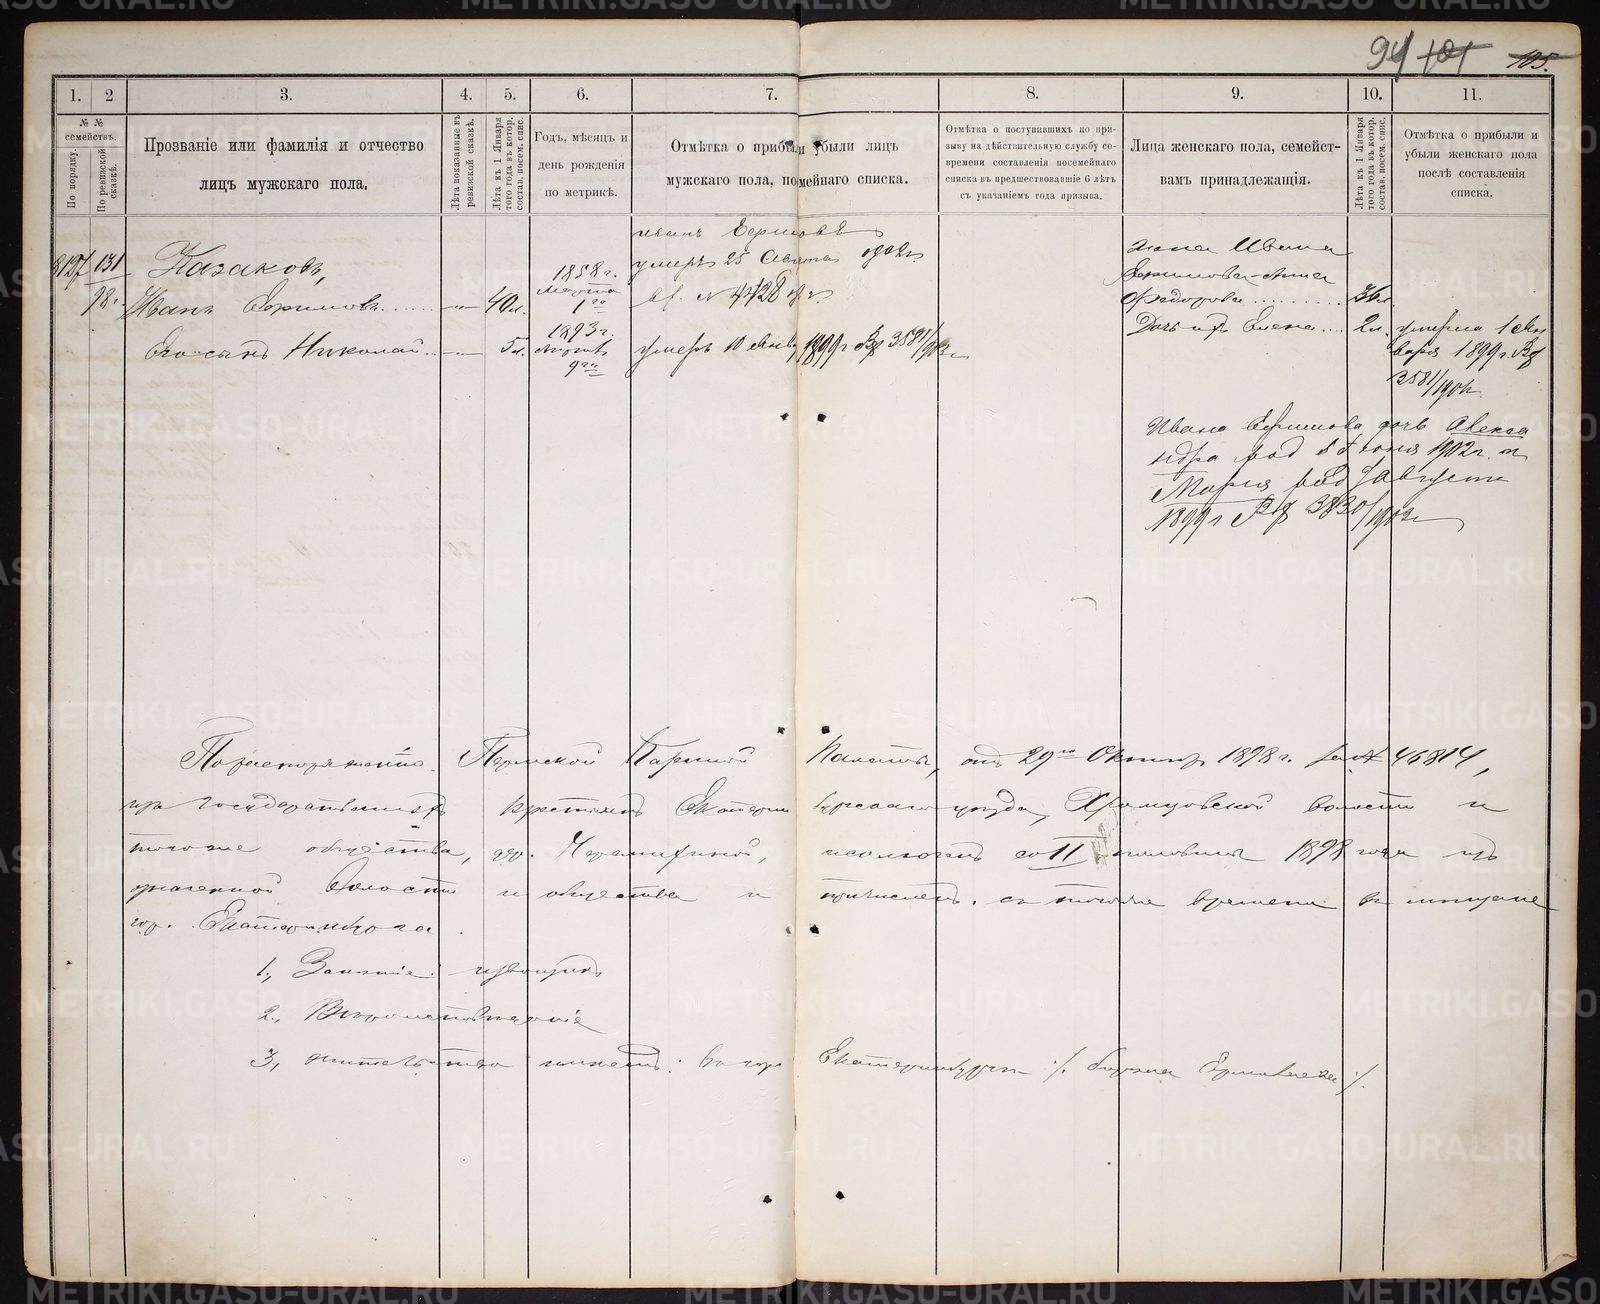 94 101 105.
1. 2 3. 4. 5. 6. 7. 8. 9. 10. 11.
№ № семействъ.
По порядку.
По ревизской сказкѣ.
Прозваніе или фамилія и отчество
лицъ мужскаго пола.
Лѣта показанные въ ревизской сказкѣ.
Лѣта къ 1 Января того года въ котор. состав. посем. спис.
Годъ, мѣсяцъ и
день рожденія
по метрикѣ.
Отмѣтка о прибыли убыли лицъ
мужскаго пола, помейнаго списка.
Отмѣтка о поступившихъ по при-
зыву на дѣйствительную службу со-
времени составленія посемейнаго
списка въ предшествовавшіе 6 лѣтъ
съ указаніемъ года призыва.
Лица женскаго пола, семейст-
вамъ принадлежащія.
Лѣта къ 1 Января того года въ котор. состав. посем. спис.
Отмѣтка о прибыли и
убыли женскаго пола
послѣ составленія
списка.
131
98.
Казаковъ,
Иванъ Ефимовъ
40 л.
1858 г.
Марта
1го
Иванъ Ефимовъ
умеръ 25 Августа 1902 г.
№ 4428
Его сынъ Николай
5 л.
1893 г.
9го
умеръ 10 Янв. 1899 г. Вд 3581/902 г.
Жена Ивана
Ефимова Анна
Федорова 36 л.
Дочь ихъ Елена 2 л.
умерла 1 Ян
варя 1899 г. Вд
3581/902
Ивана Ефимова дочь Алекса
ндра род 1902 г. и
Марія род Августа
1899 г Вд 3830/1902 г
По распоряженію Пермской Казенной Палаты, отъ 29го Октябр 1898 г. за № 46814,
изъ государственныхъ крестьянъ Екатеринбургскаго уѣзда, Храмцовской волости и
того же общества, дер. Черемисиной, исключенъ со II половины 1898 года изъ
означенной волости и общества и причисленъ съ того же времени въ мѣщане
гор. Екатеринбурга.
1., Занятіе: извощикъ
2., Вѣроисповѣданіе
3., жительство имѣетъ: въ гор Екатеринбургѣ
METRIKI.GASO-URAL.RU